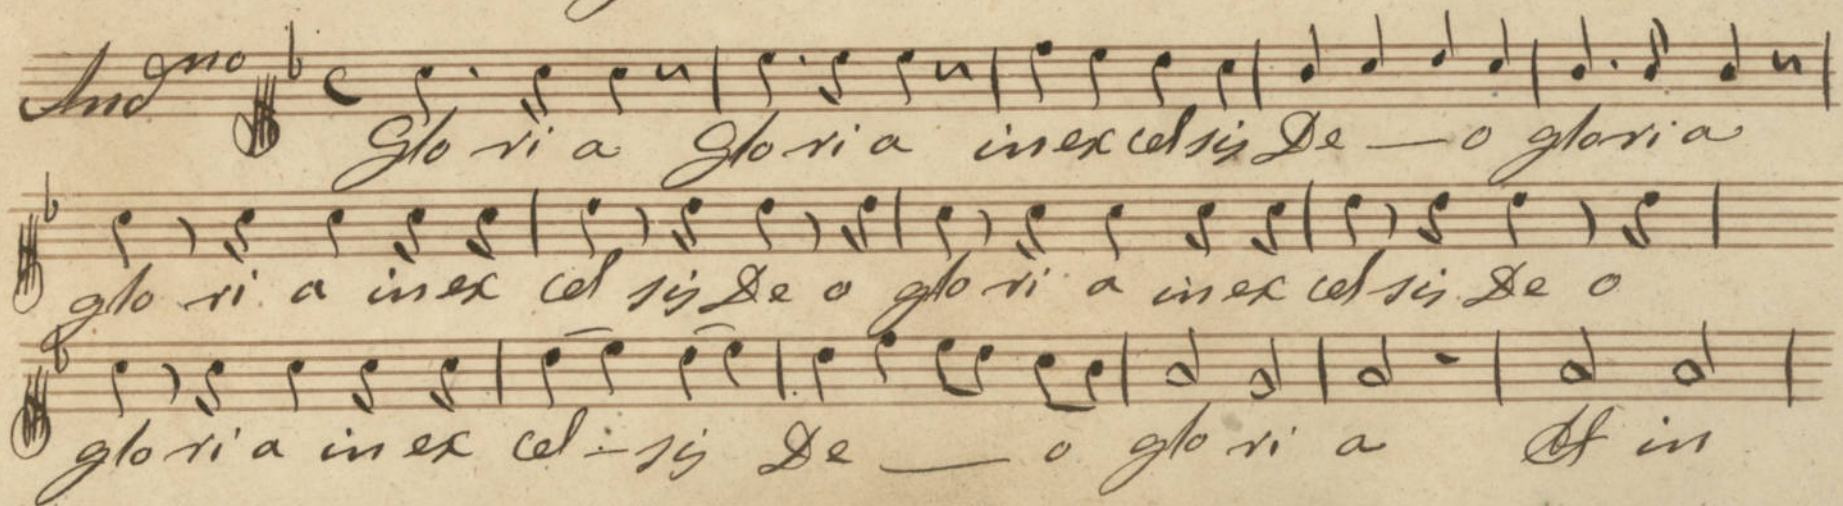 Andno Glo ri a Glo ri a in ex cel sis De — o glo ri a
glo ri a in ex cel sis De o glo ri a in ex cel sis De o
glo ri a in ex cel - sis De — o glo ri a Et in